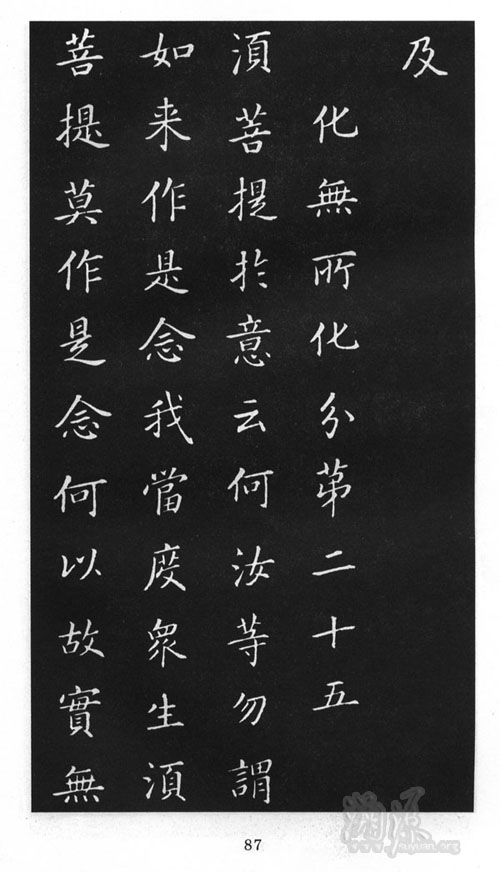 及
化無所化分苐二十五
湏菩提扵意云何汝等勿謂
如来作是念我當度衆生湏
菩提莫作是念何以故實無
87
yuyuan.org